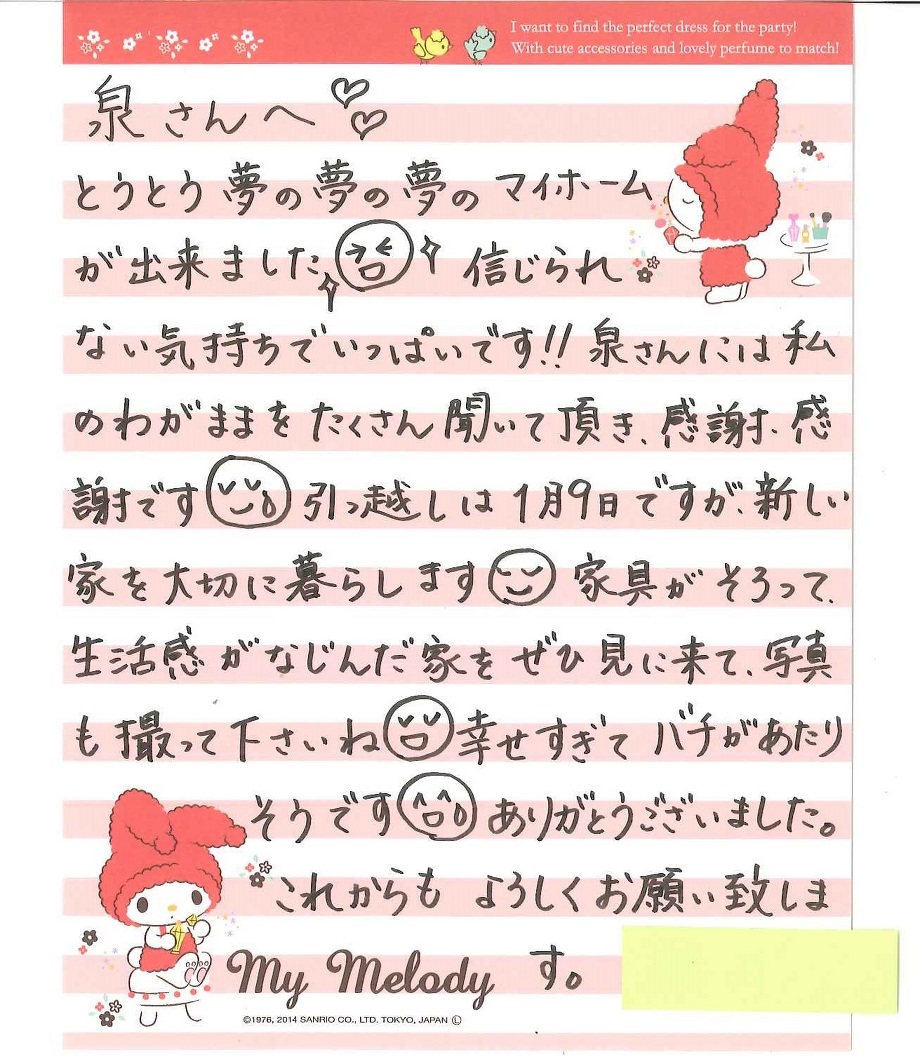 I want to find the perfect dress for the party!
With cute accessories and lovely perfume to match!
泉さんへ♡♡
とうとう夢の夢の夢のマイホーム
が出来ました 信じられ
ない気持ちでいっぱいです!! 泉さんには私
のわがままをたくさん聞いて頂き、感謝、感
謝です 引っ越しは1月9日ですが、新しい
家を大切に暮らします 家具がそろって、
生活感がなじんだ家をぜひ見に来て、写真
も撮って下さいね 幸せすぎてバチがあたり
そうです ありがとうございました。
これからもよろしくお願い致しま
す。
My Melody
©1976, 2014 SANRIO CO., LTD. TOKYO, JAPAN Ⓛ